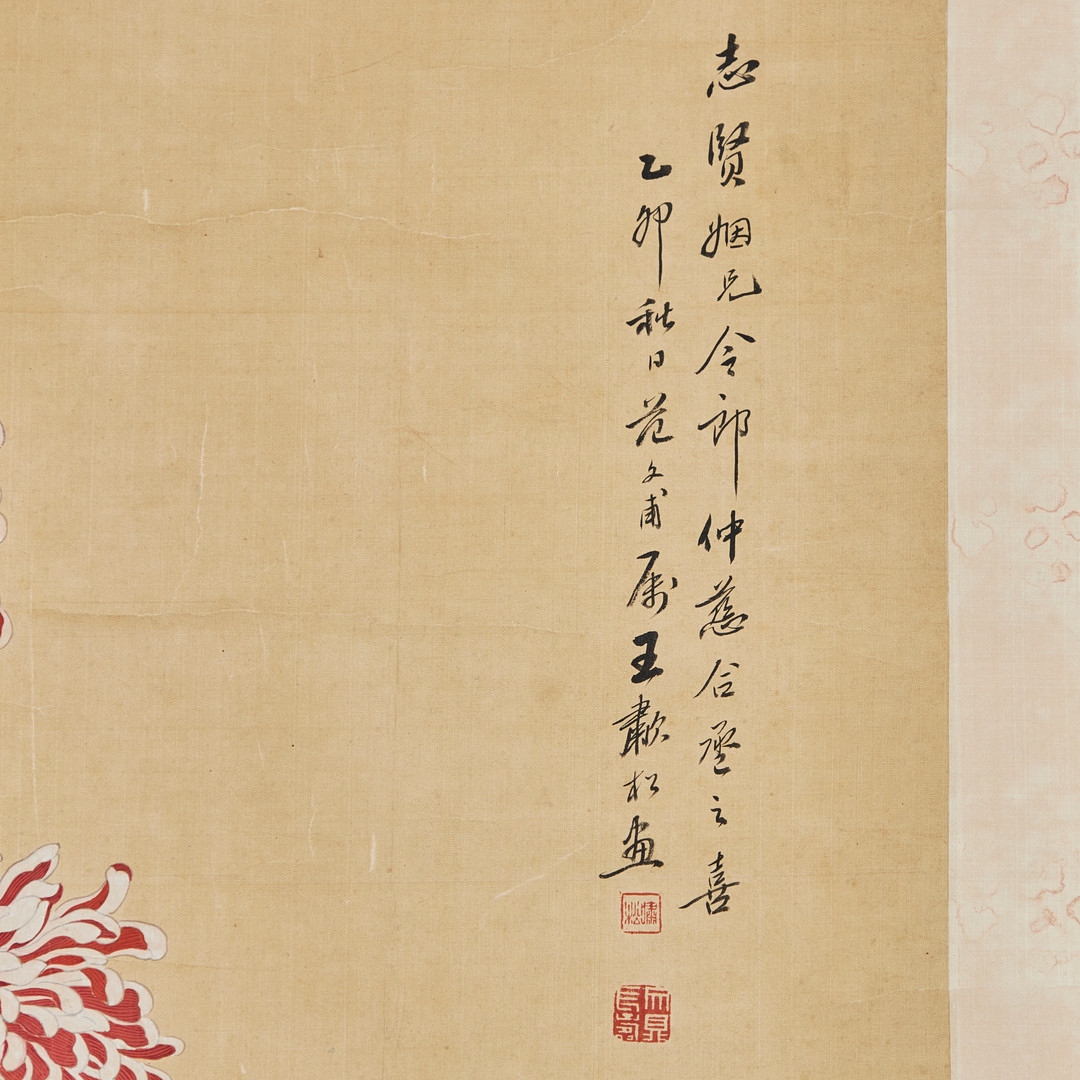 志賢姻兄令郎仲慈合巹之喜
乙卯秋日范文甫属王歗松畫
嘯松